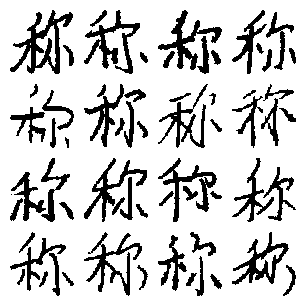 称称称称
称称称称
称称称称
称称称称